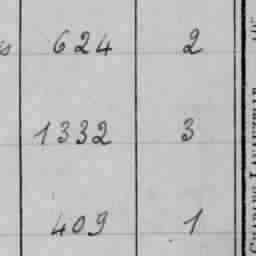 s 624 2
1332 3
409 1